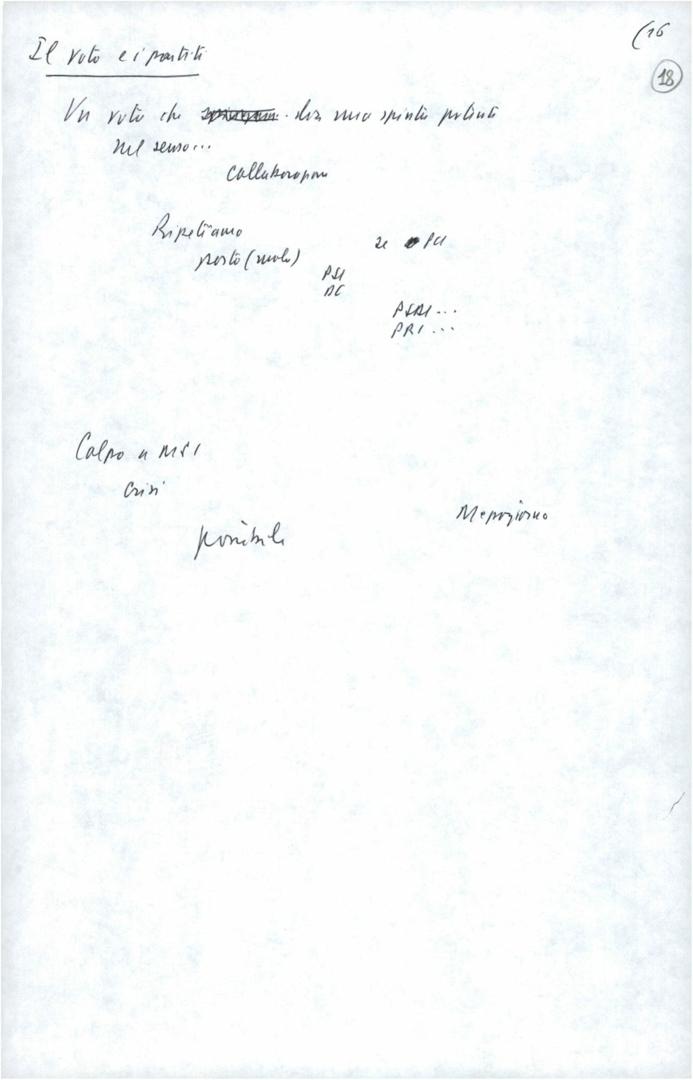 (16
18
Il voto e i partiti
Un voto che dia una spinta potente
nel senso...
collaborazione
Ripetiamo
se PCI
posto (ruolo)
PSI
DC
PSDI ...
PRI ...
Colpo a MSI
crisi
Mezzogiorno
possibile